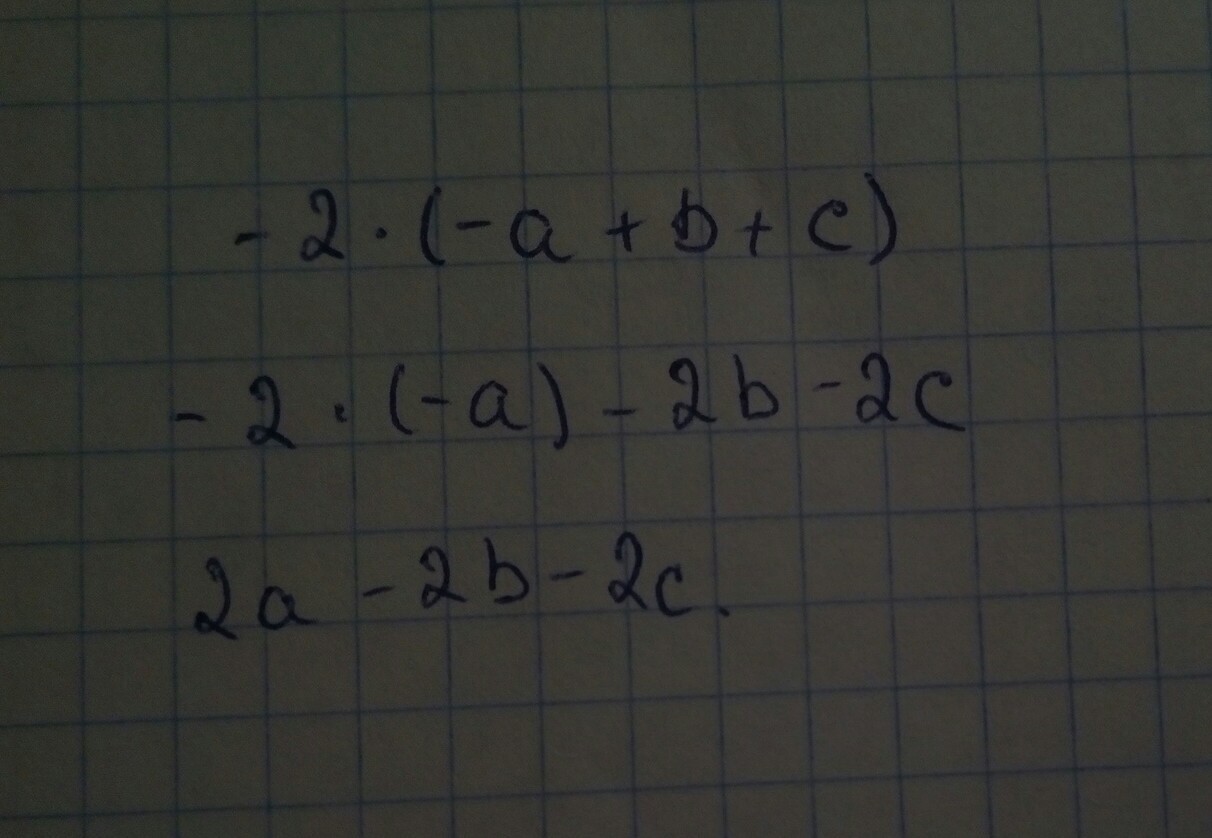 - 2 · (-a + b + c)
- 2 · (-a) - 2b - 2c
2a - 2b - 2c.